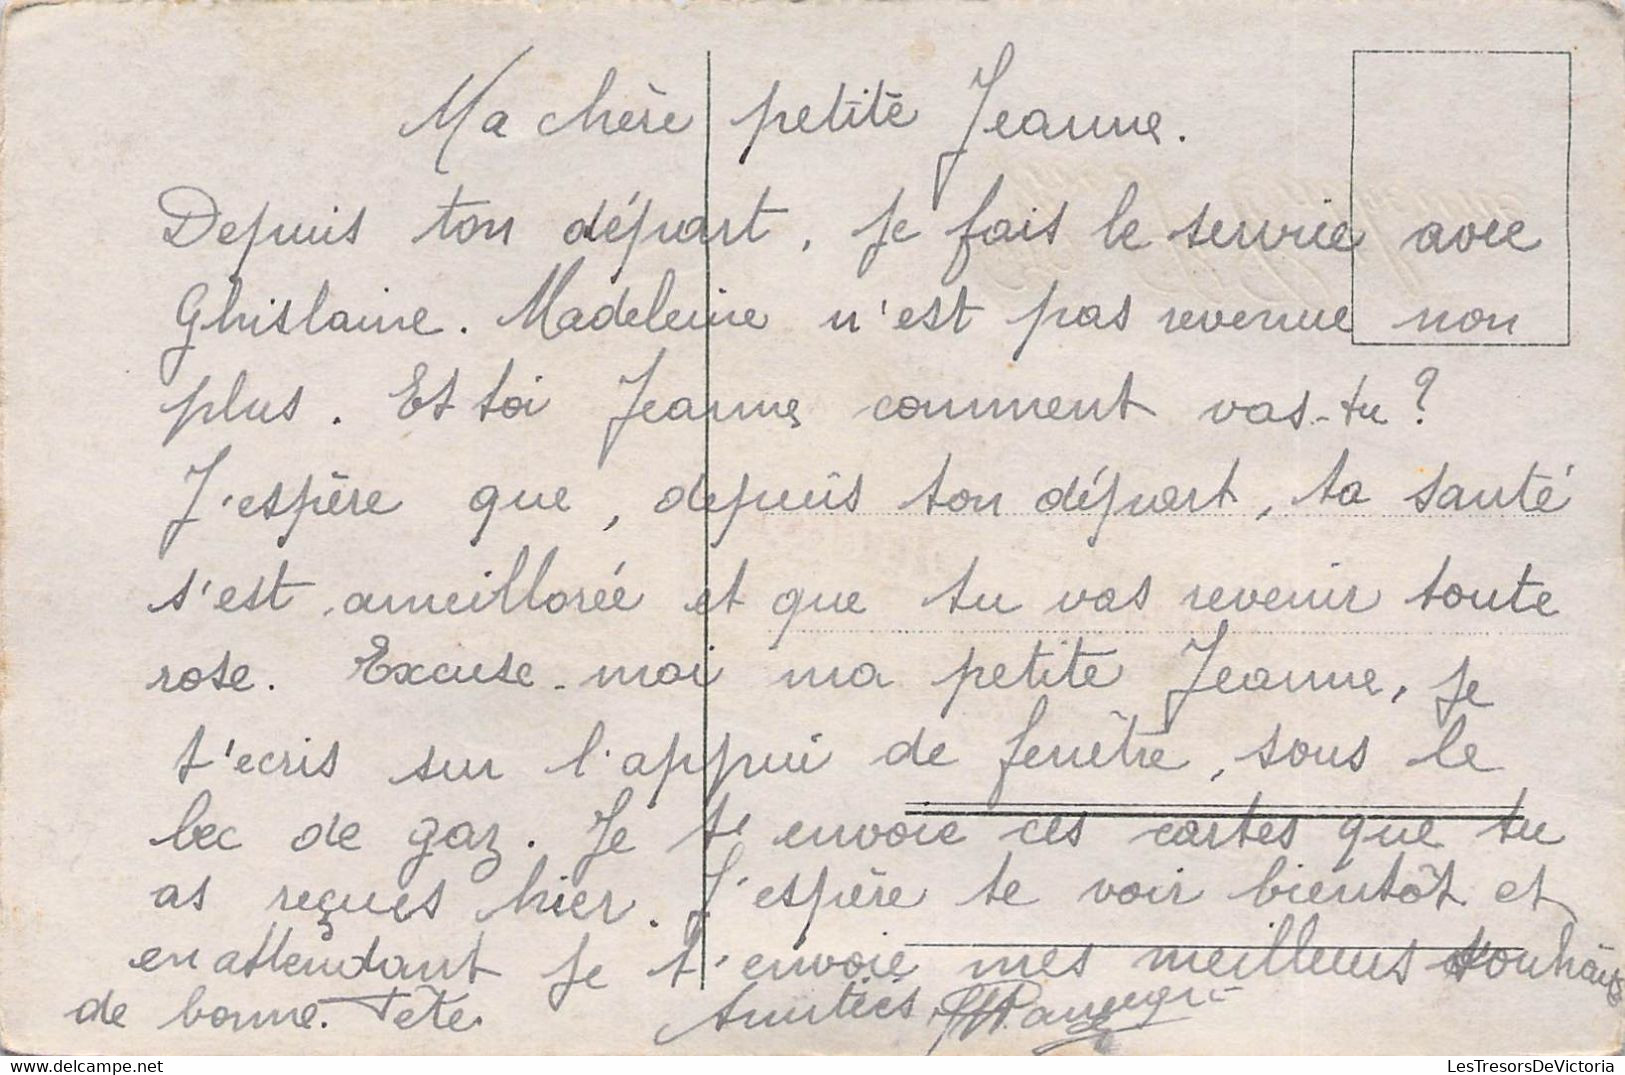 Ma chère petite Jeanne.
Depuis ton départ, je fais le service avec
Ghislaine. Madeleine n'est pas revenue non
plus. Et toi Jeanne comment vas-tu?
J'espère que, depuis ton départ, ta santé
s'est ameillorée et que tu vas revenir toute
rose. Excuse-moi ma petite Jeanne, je
t'ecris sur l'appui de fenêtre, sous le
bec de gaz. Je t' envoie ces cartes que tu
as reçues hier. J'espère te voir bientôt et
en attendant je t'envoie mes meilleurs souhaits
de bonne Fête.
Amitiés
LesTresorsDeVictoria